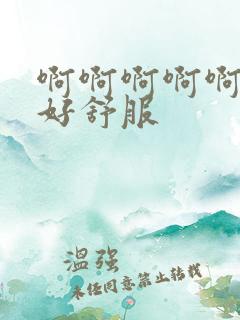 啊啊啊啊啊
好舒服
温强
未经同意禁止转载